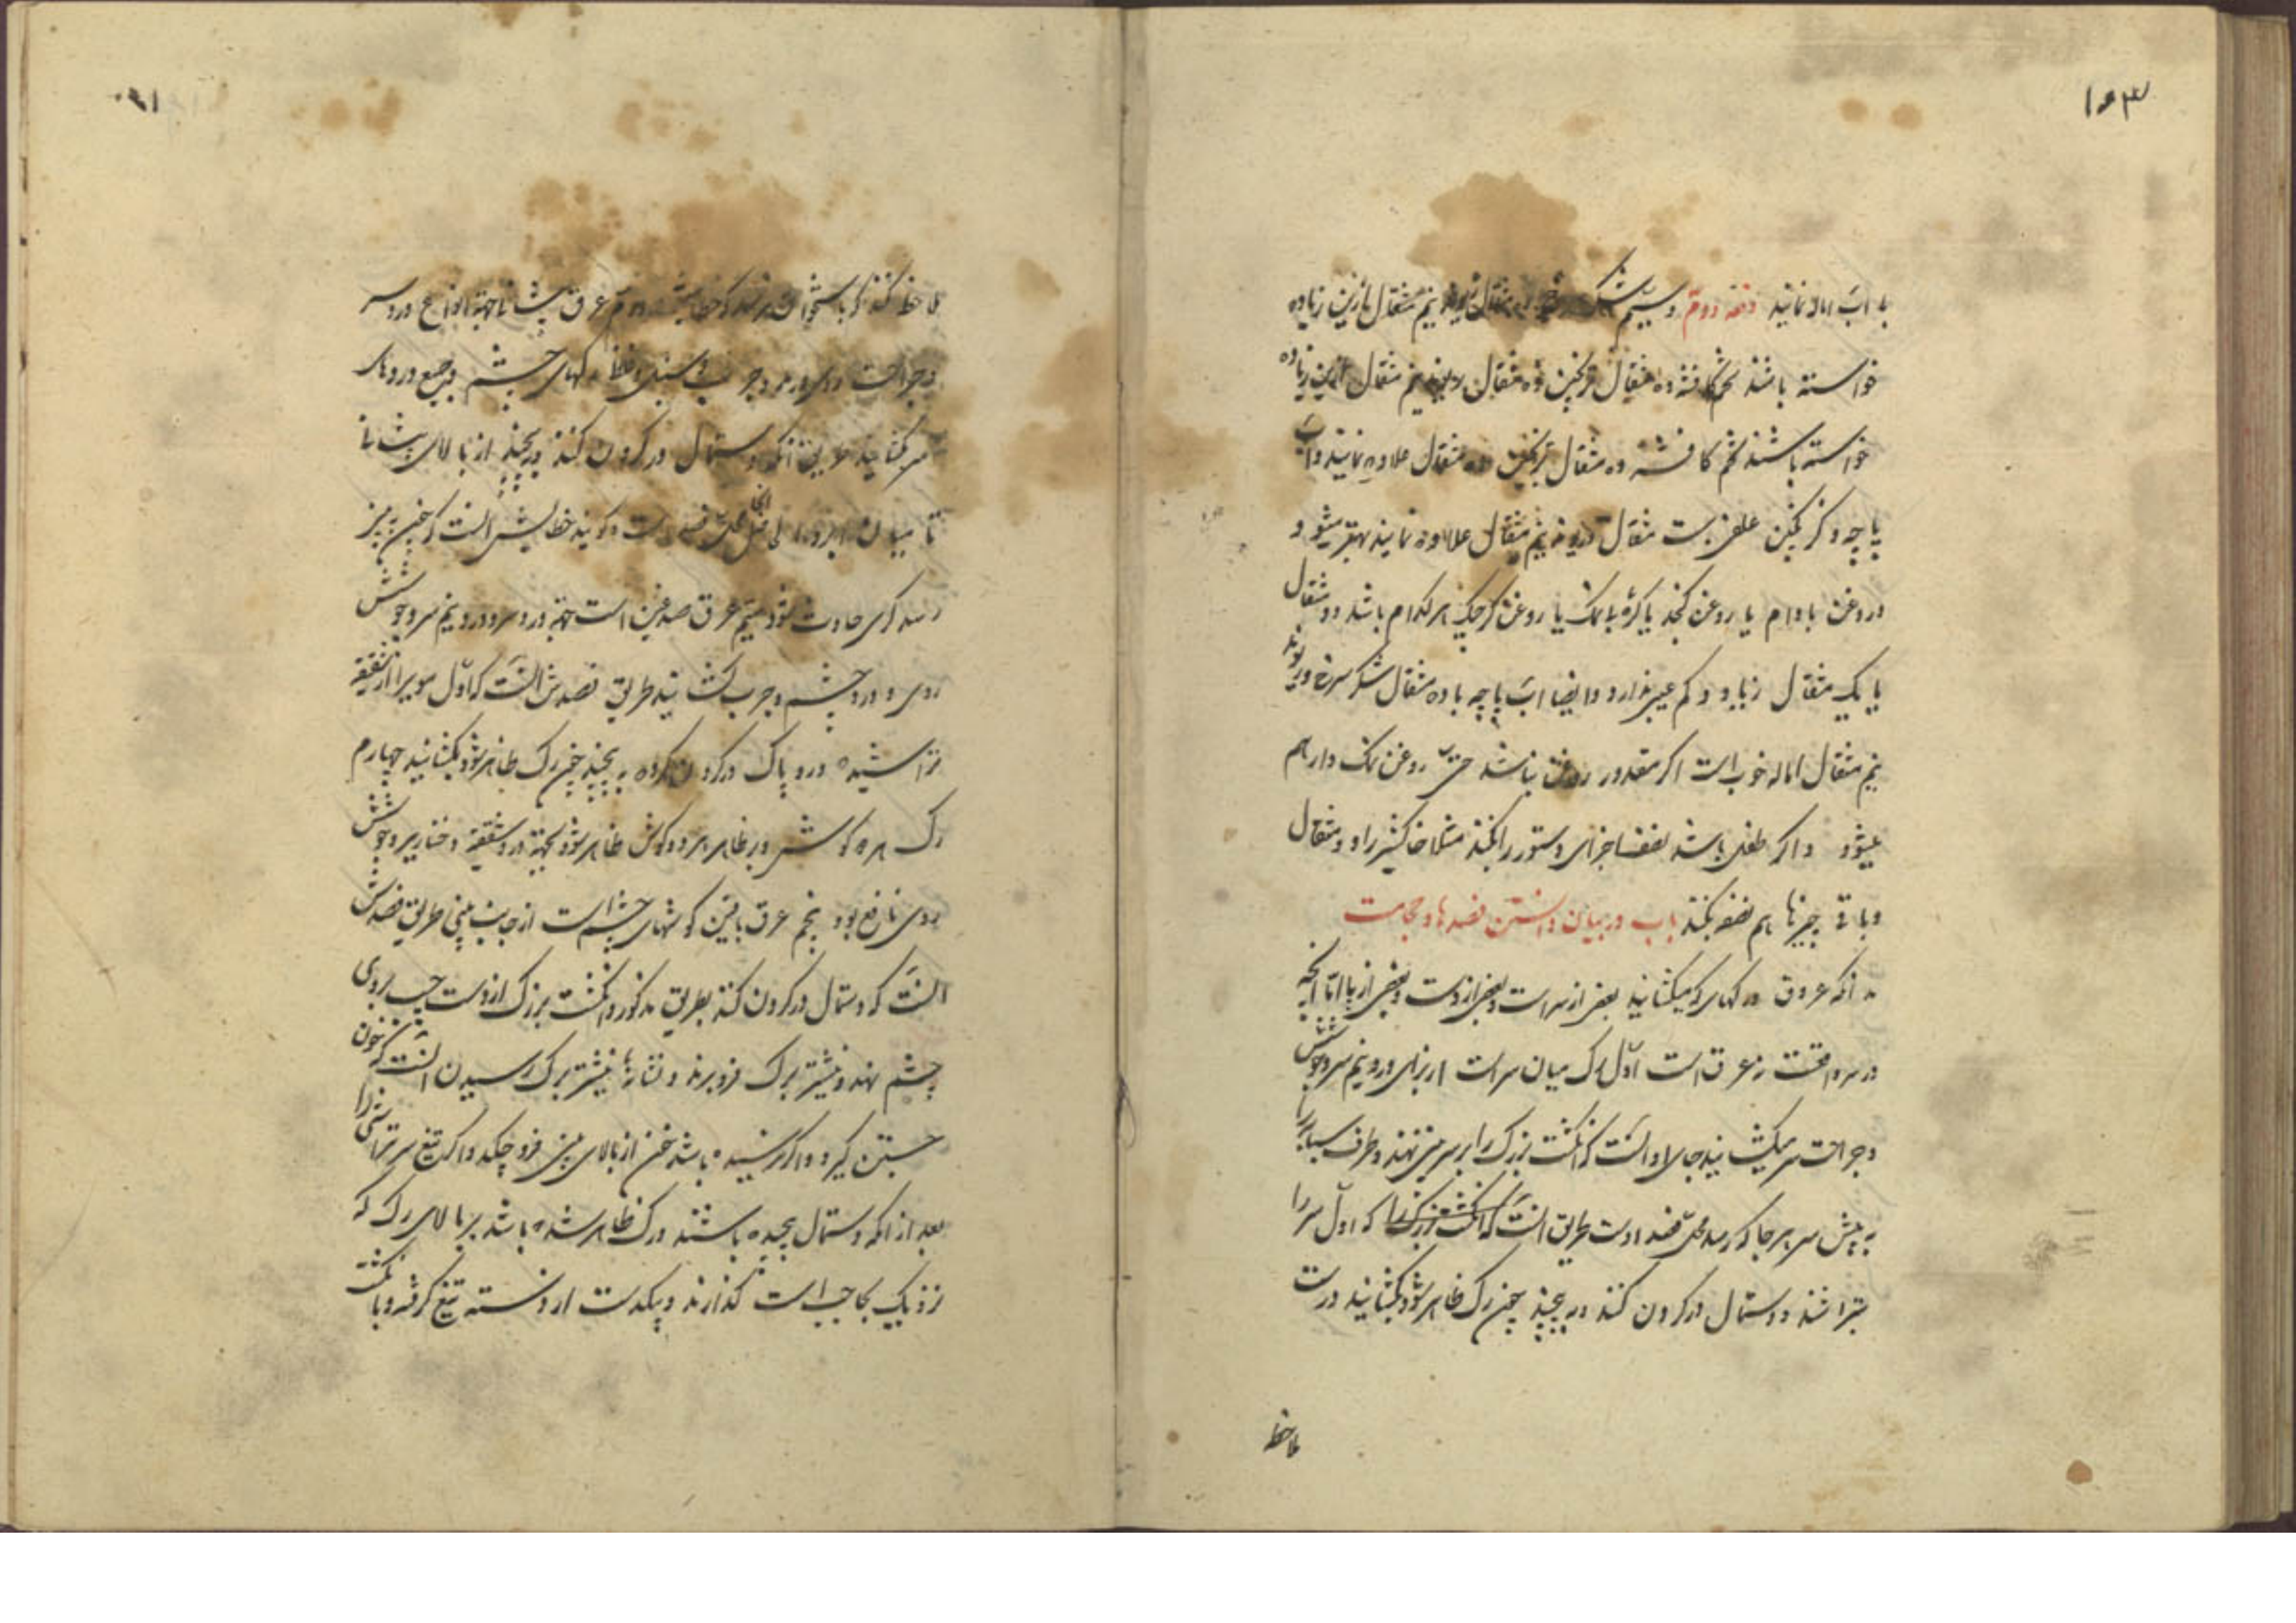 ۱۵۳
با آب اماله نمایند دفعه دوم و سیم شکر سرخ ده مثقال بوره نیم مثقال ازین زیاده
خواسته باشند تخم کافشه ده مثقال ترنجبین ده مثقال بوره نیم مثقال ازین زیاده
خواسته باشند تخم کافشه ده مثقال ترنجبین ده مثقال علاوه نمایند و آب
پاچه و کزنگبین علفی بیست مثقال بوره نیم مثقال علاوه نمایند بهتر میشود و
و روغن بادام یا روغن کنجد یا کره با نمک یا روغن کرچک هر کدام باشد دو مثقال
یا یک مثقال زیاد و کم عیبی ندارد و ایضا آب پاچه با ده مثقال شکر سرخ و
نیم مثقال اماله خوب است اکر مقدور روغن نباشد حتی روغن نمک دار هم
میشود و اکر طفل باشد نصف اجزای دستور را بکنند مثلا خاکشیر را دو مثقال
و باقی چیزها هم نصف بکنند باب در بیان دانستن فصدها و حجامت
بدانکه عروق و رکهای که میکشایند بعضی از سر است و بعضی از دست و بعضی از پا امّا آنچه
در سر واقعست عرق است اوّل رک میان سر است از برای درد نیم سر و جوشش
و جراحت سر میکشایند جای او آنست که انکشت بزرک را بر سر بینی نهند و طرف سبابه را
به پیش سر بهر جا که رسد محلّ فصد اوست طریق آنست که انکشت بزرک را که اوّل سر را
بتراشند و دستمال در کردن کنند و به پیچند چون رک ظاهر شود بکشایند و درست
ملاحظه
ملاحظه کنند که باستخوان نرسد که خطاست دوّم عرق پیشانی جهة انواع درد سر
و جراحت روی و جرب و سبل و غلظ رکهای چشم و جمیع دردهای
سر کشایند طریق آنکه دستمال در کردن کنند و به پیچند از بالای پیشانی
تا میان ابرو محلّ فصد است و کویند خطایش آنست که چون به
رسد کری حادث شود سیّم عرق صدغین است جهة درد سر و درد نیم سر و جوشش
روی و درد چشم و جرب کشایند طریق فصدش آنست که اوّل موی را از شقیقه
تراشیده و پاک در کردن کرده به پیچند چون رک ظاهر شود بکشایند چهارم
رک هر دو کوش در ظاهر هر دو کوش ظاهر شود بجهة درد شقیقه و خنازیر و جوشش
روی نافع بود پنجم عرق باقین کوشهای چشم است از جانب بینی طریق فصدش
آنست که دستمال در کردن کنند بطریق مذکور و انکشت بزرک از دست چپ بر روی
چشم نهند و نیشتر برک فرو برند و نشانه نیشتر برک رسیدن آنست که خون
جستن کیرد و اکر نرسیده باشد خون از بالای بینی فرو چکد و اکر تیغ سرتراشی را
بعد از آنکه دستمال پیچیده باشند و رک ظاهر شده باشد بر بالای رک که
نزدیک بحاجب است کذارند و بیکدست از دسته تیغ کرفته و با انکشت